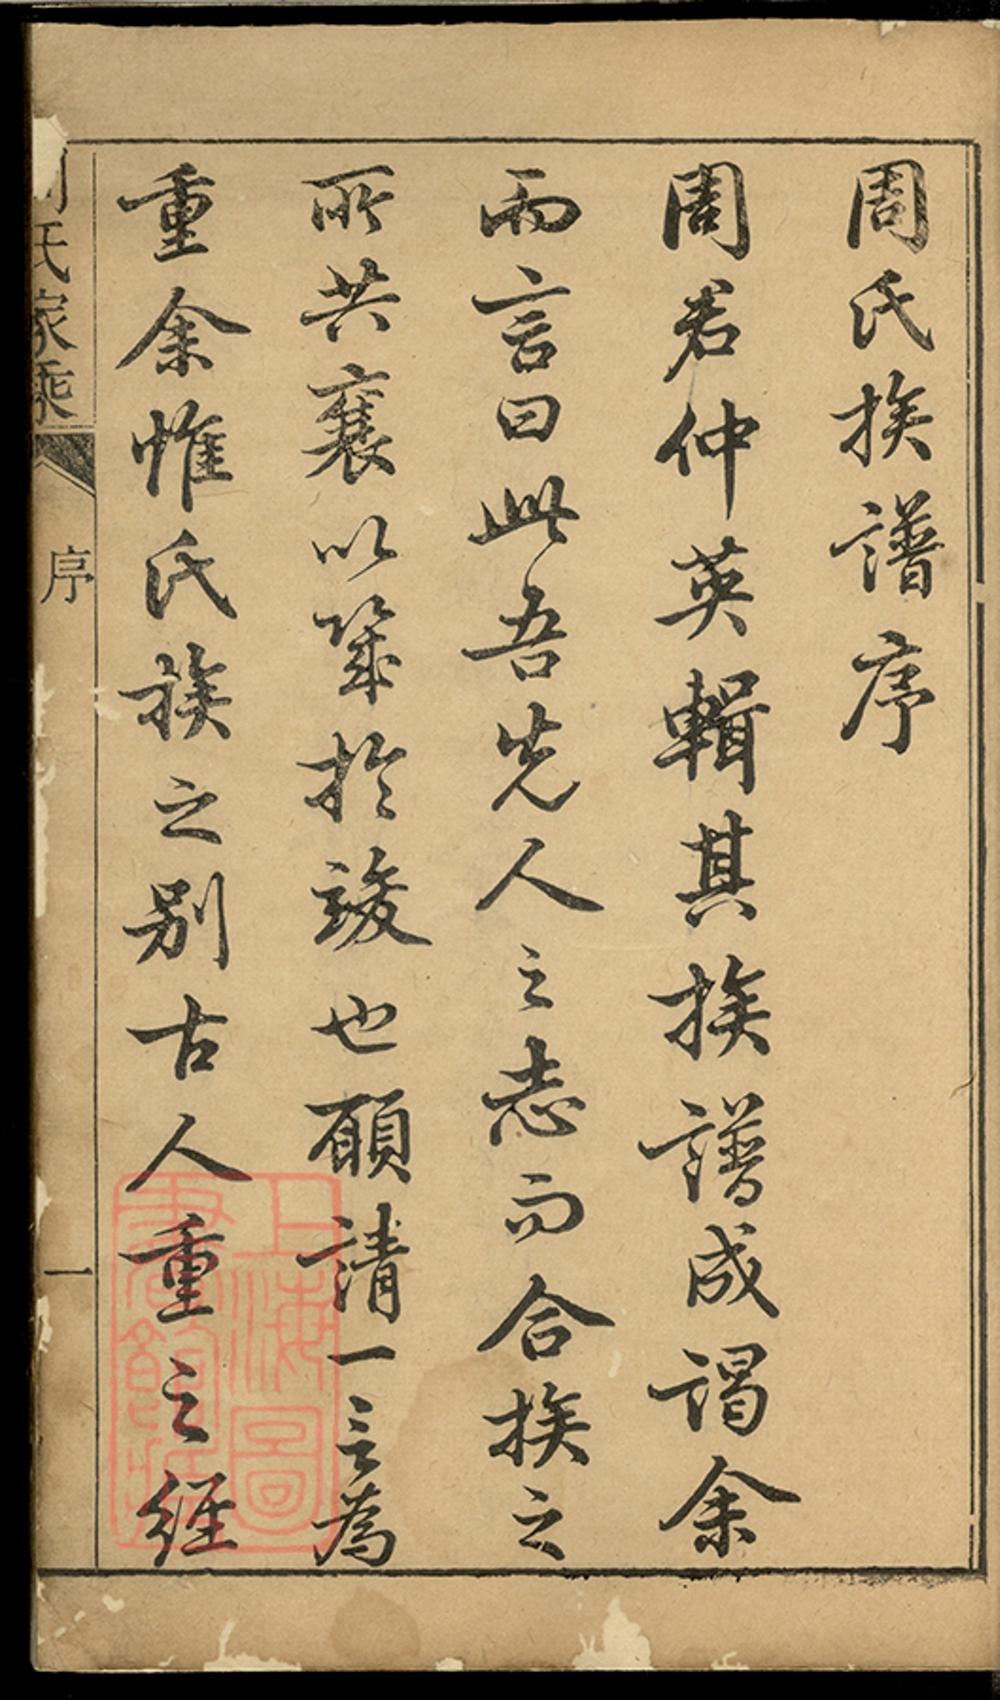 周氏族譜序
周君仲英輯其族譜成謁余
而言曰此吾先人之志而合族之
所共襄以幾於竣也願請一言為
重余惟氏族之別古人重之經
周氏家乘
序
一
上海圖
書館藏